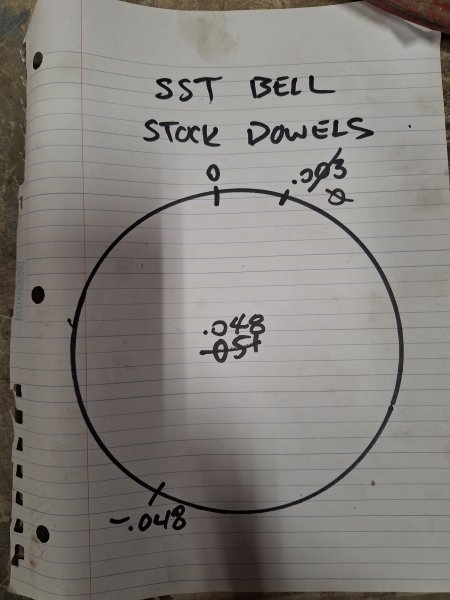 SST BELL
STOCK DOWELS
0
.003
0
.048
.051
-.048